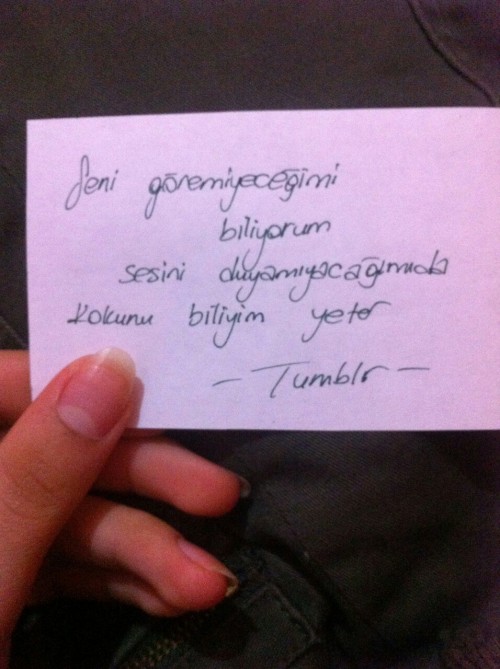 Seni göremiyeceğimi
biliyorum
sesini duyamıyacağımıda
kokunu biliyim yeter
- Tumblr -